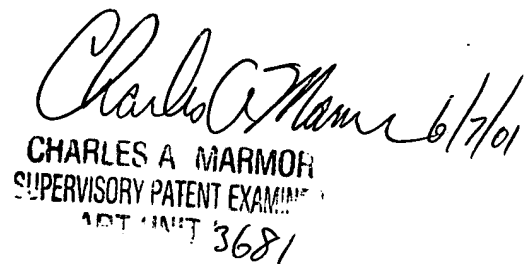 Charles A Marmor 6/7/01
CHARLES A MARMOR
SUPERVISORY PATENT EXAMINER
ART UNIT 3681